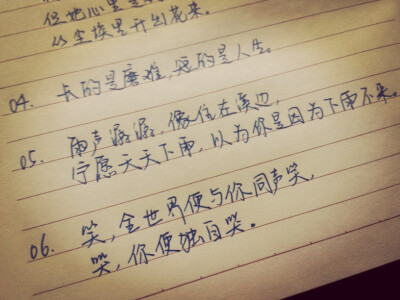 但她心里是
从尘埃里开出花来。
04. 长的是磨难,短的是人生。
05. 雨声潺潺,像住在溪边,
宁愿天天下雨,以为你是因为下雨不来。
06. 笑,全世界便与你同声笑,
哭,你便独自哭。